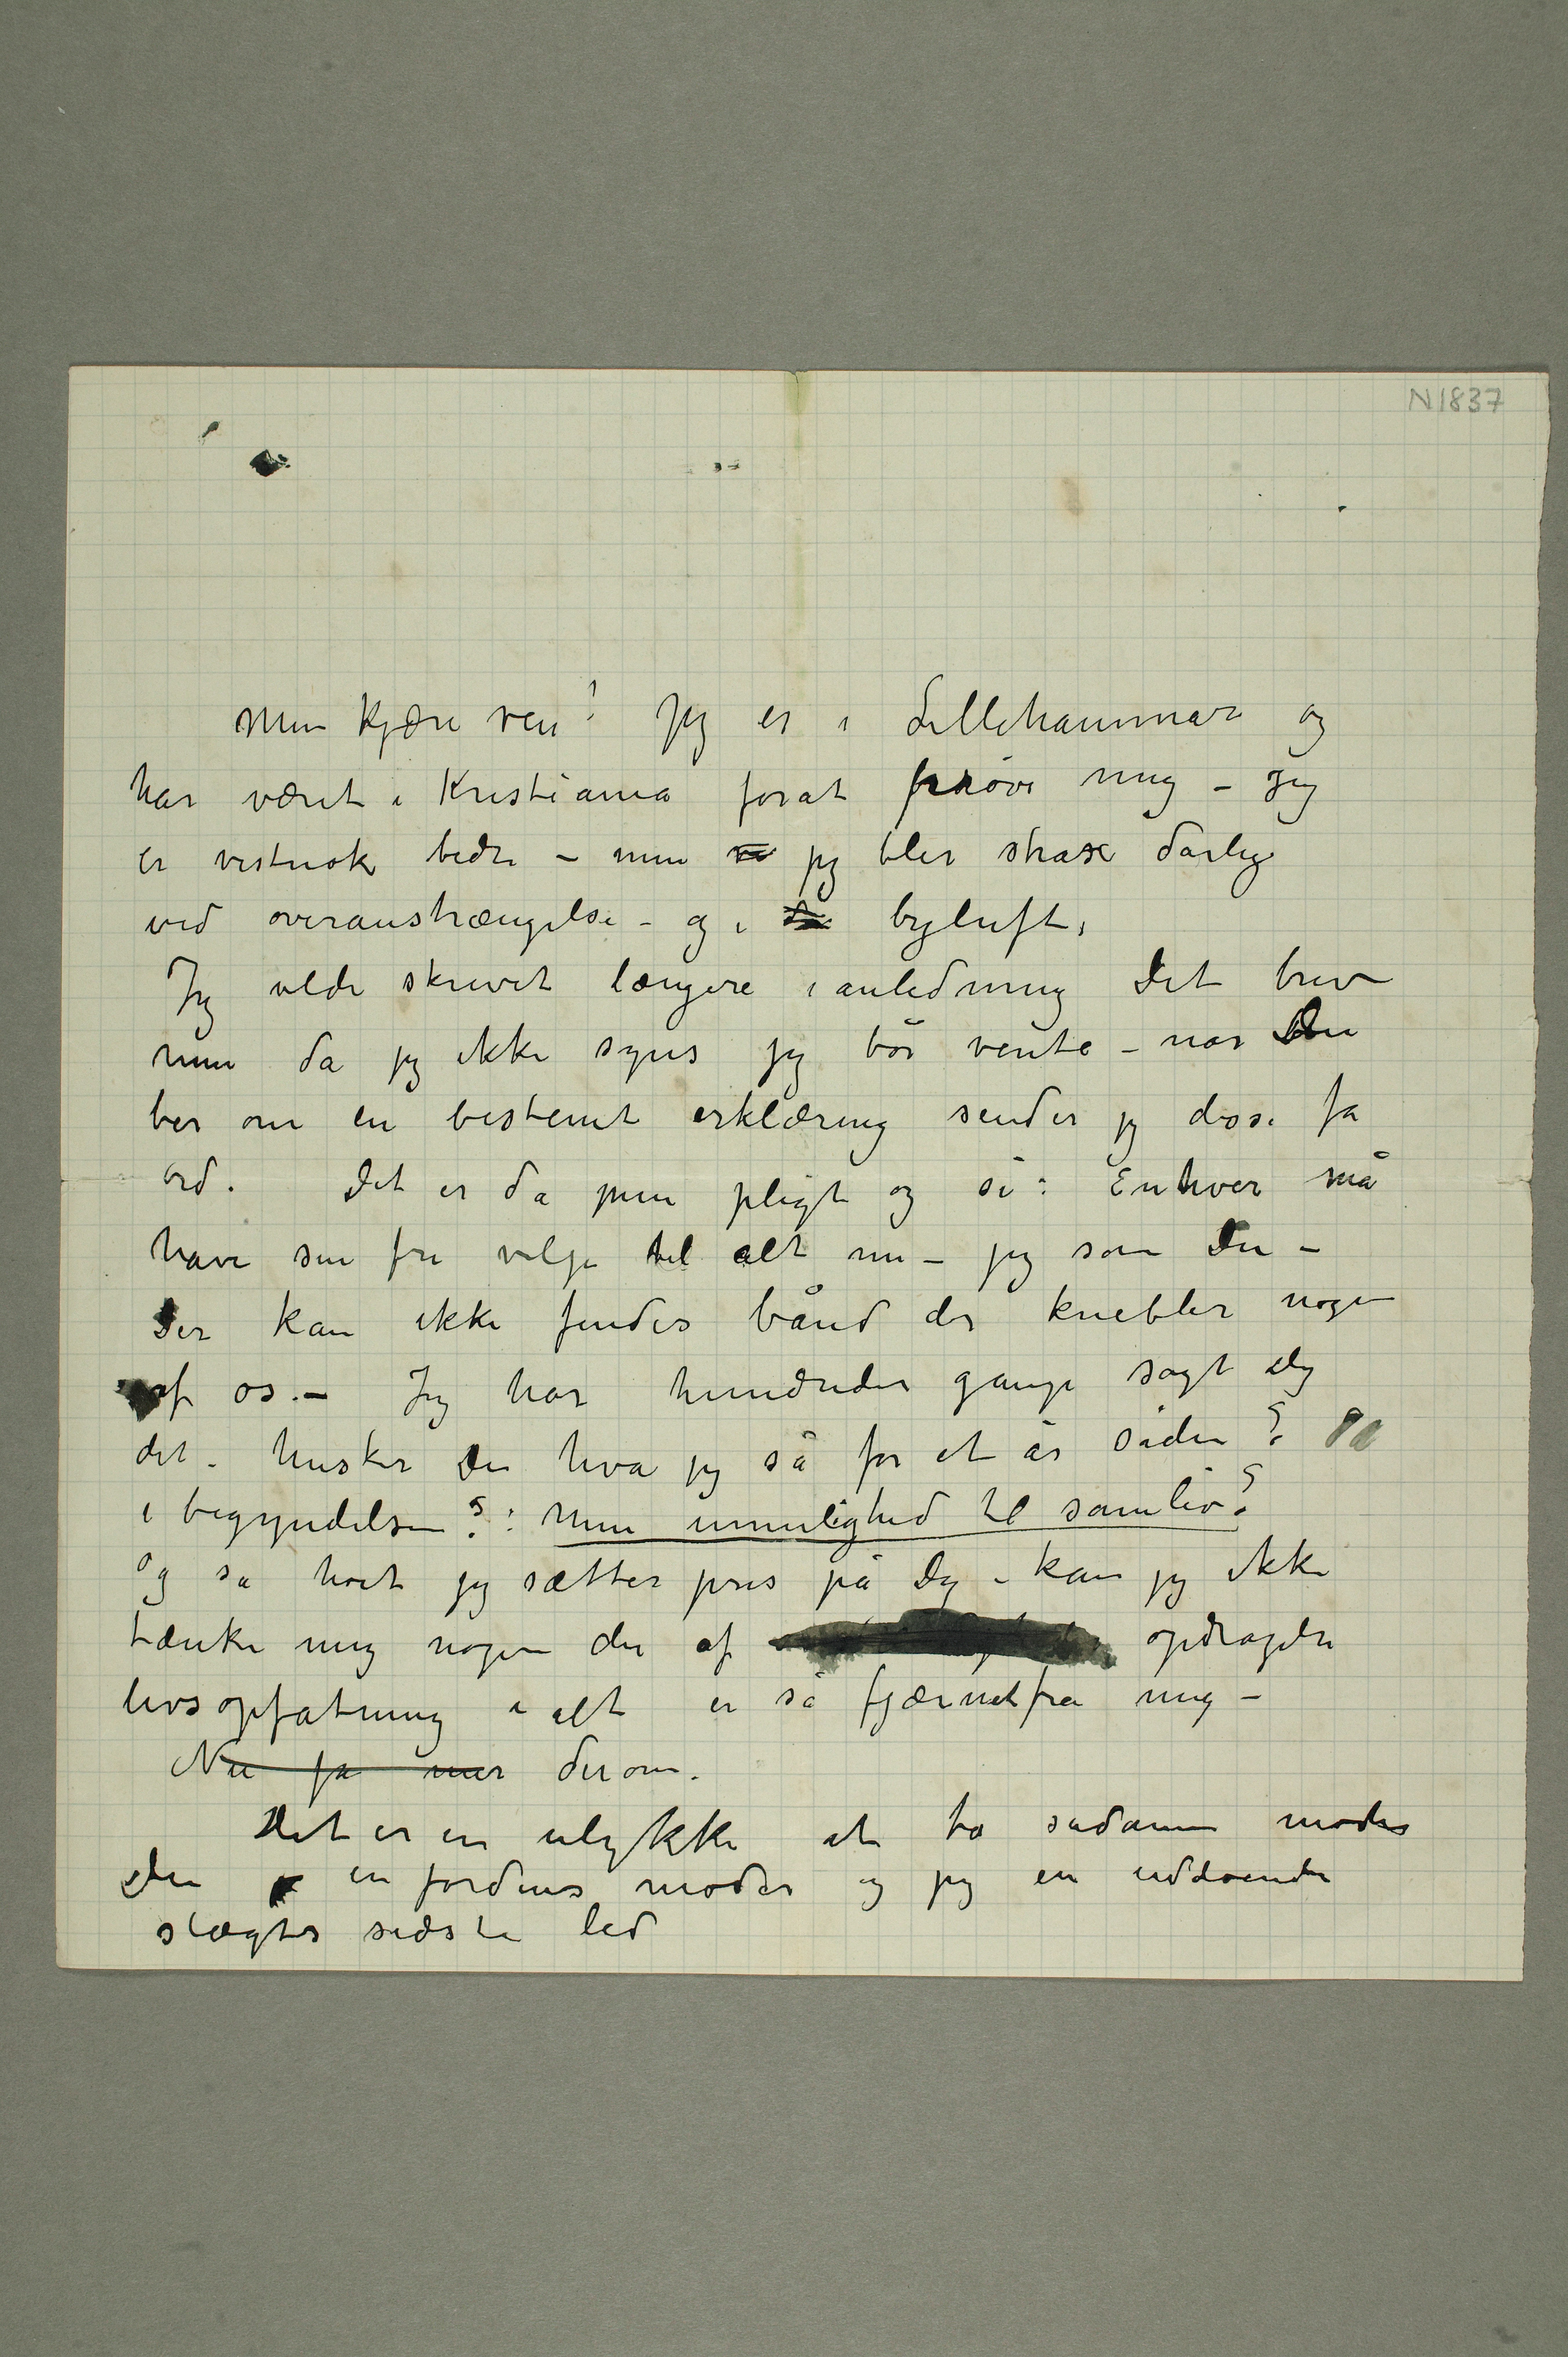 N1837
Min kjære ven! Jeg er i Lillehammar og
har været i Kristiania forat prøve mig – jeg
er vistnok bedre – men jeg bler strax dårlig
ved overanstrængelse – og i byluft,
Jeg vilde skrevet længere i anledning Dit brev
men da jeg ikke synes jeg bør vente – når Du
ber om en bestemt erklæring sender jeg disse få
ord. Det er da min pligt og si: Enhver må
have sin fri vilje til alt nu – jeg som Du –
Der kan ikke findes bånd der knebler nogen
af os. – Jeg har hundreder gange sagt Dig
det – husker Du hva jeg sa for et år siden?
i begyndelsen?: Min umulighed til samliv?
Og så høit jeg sætter pris på Dig – kan jeg ikke
tænke mig nogen der af opdragelse
livsopfatning i alt er så fjærnet fra mig –
Nu ja mer derom.
Det er en ulykke at to sådanne mødes
Du en fordens moder og jeg en uddøende
slægts sidste led